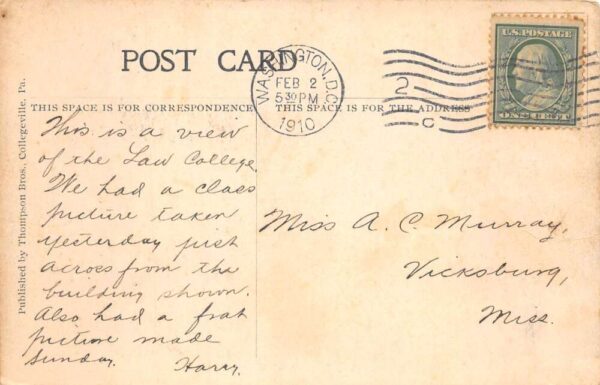 POST CARD
WASHINGTON, D.C.
FEB 2
5 30 PM
1910
2
C
U.S. POSTAGE
ONE CENT
THIS SPACE IS FOR CORRESPONDENCE
THIS SPACE IS FOR THE ADDRESS
Published by Thompson Bros., Collegeville, Pa.
This is a view
of the Law College.
We had a class
picture taken
yesterday just
across from the
building shown.
Also had a frat
picture made
Sunday. Harry.
Miss A. C. Murray,
Vicksburg,
Miss.